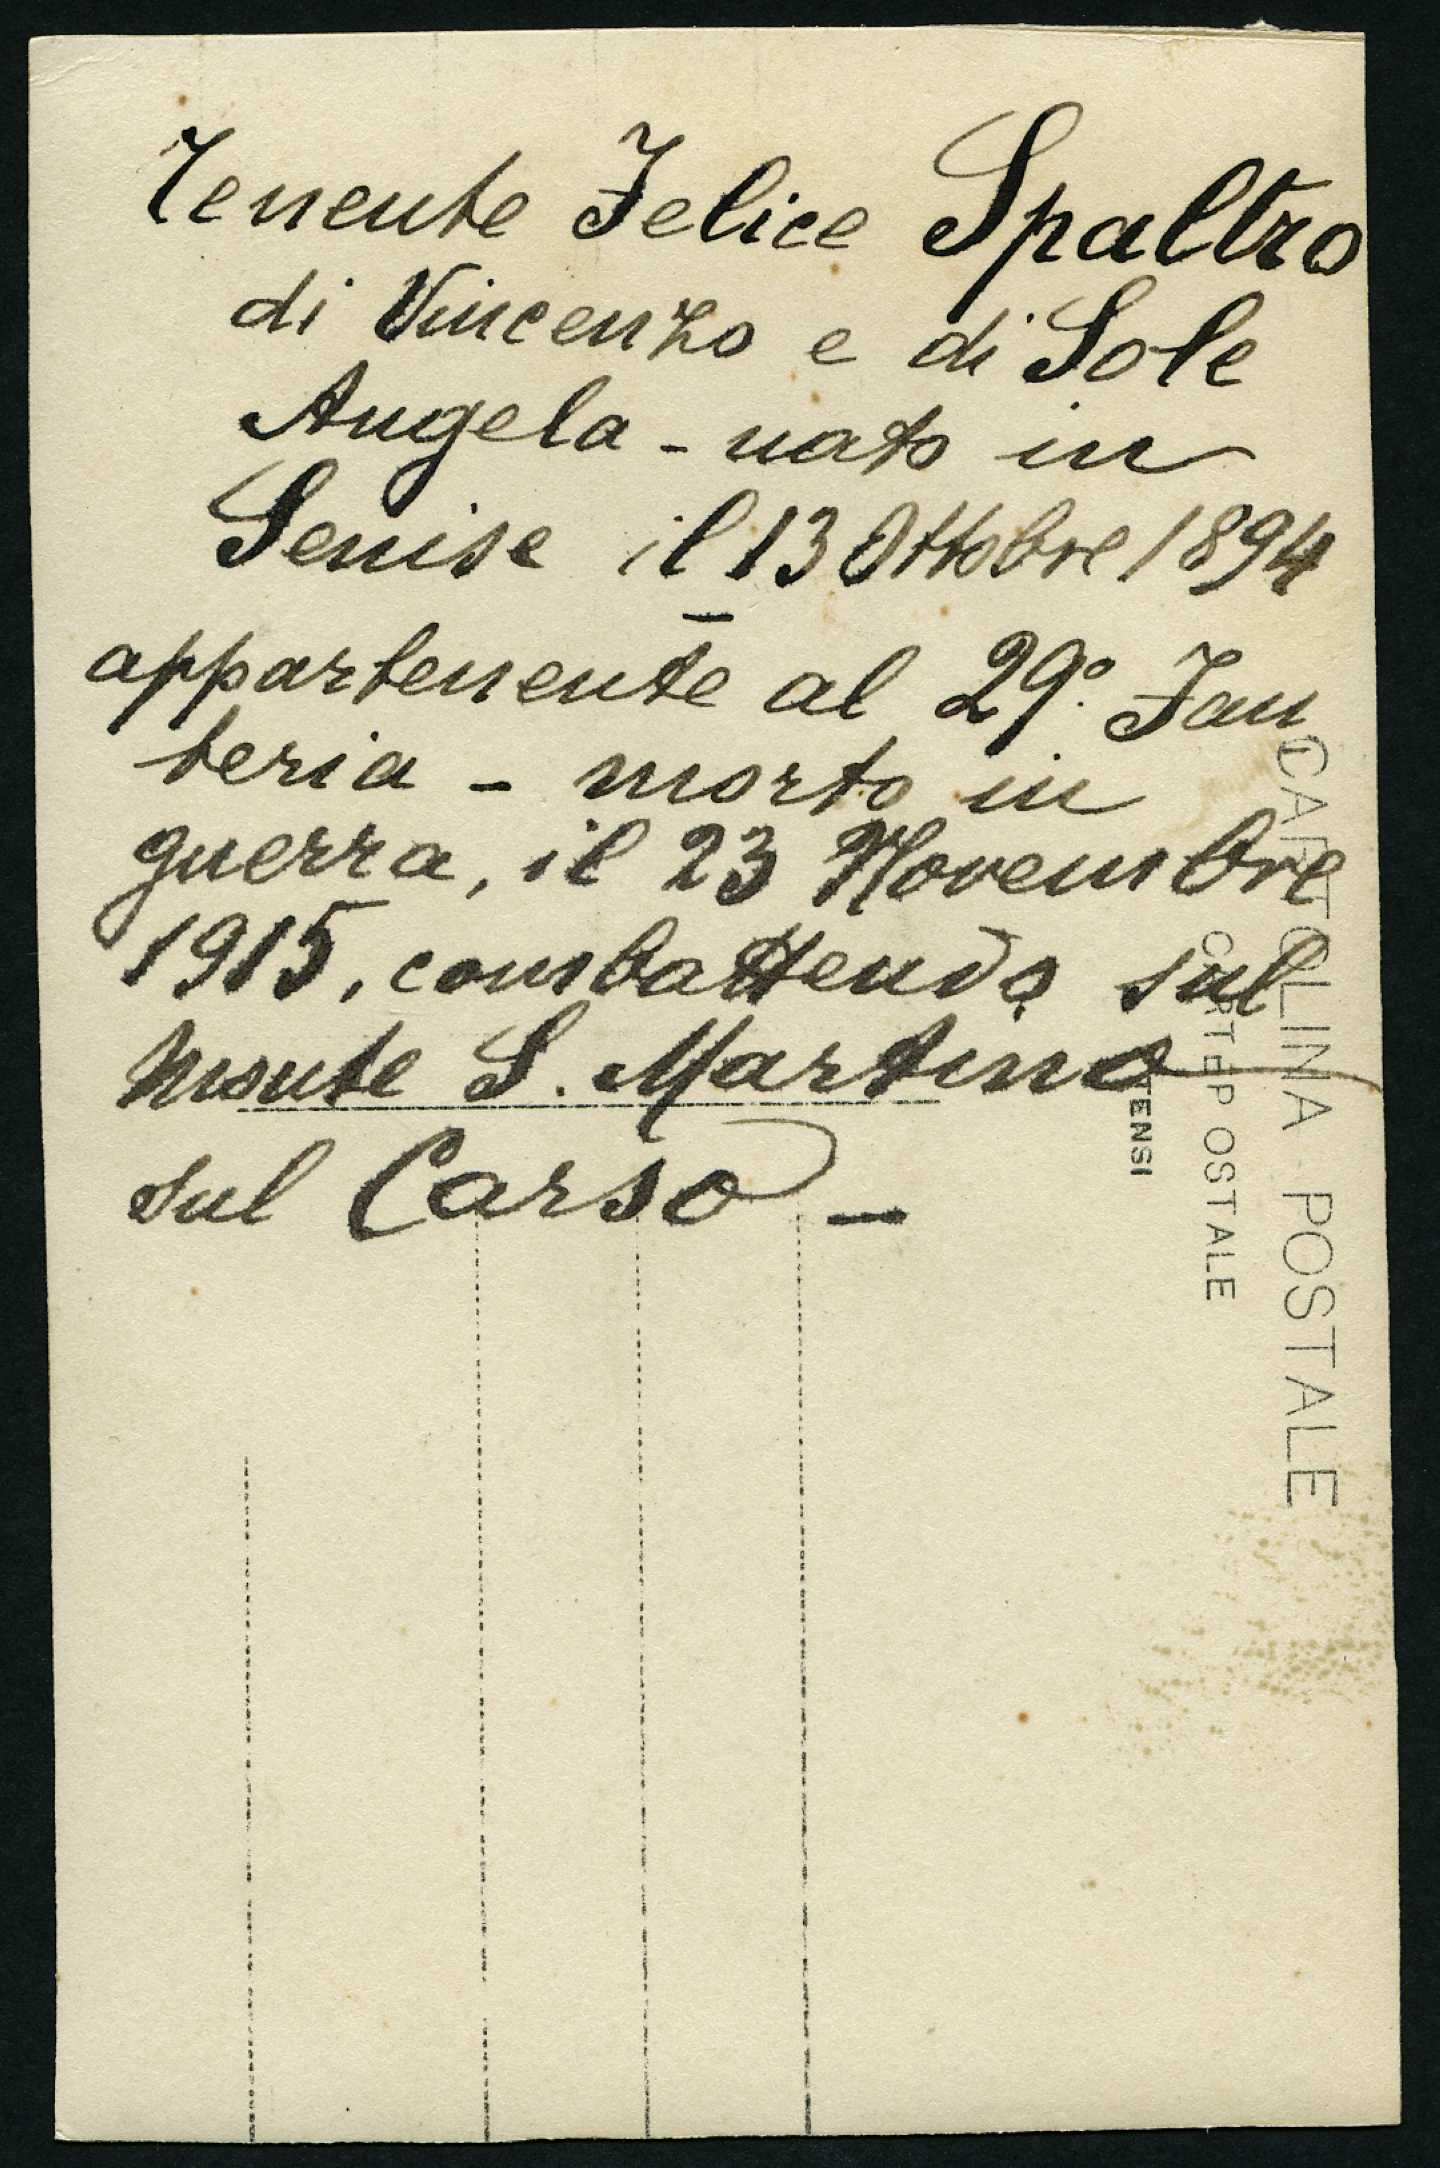 Tenente Felice Spaltro
di Vincenzo e di Sole
Angela - nato in
Senise il 13 Ottobre 1894
appartenente al 29º Fan
teria - morto in
guerra, il 23 Novembre
1915, combattendo sul
monte S. Martino
sul Carso -
CARTOLINA POSTALE
CARTE POSTALE
TENSI